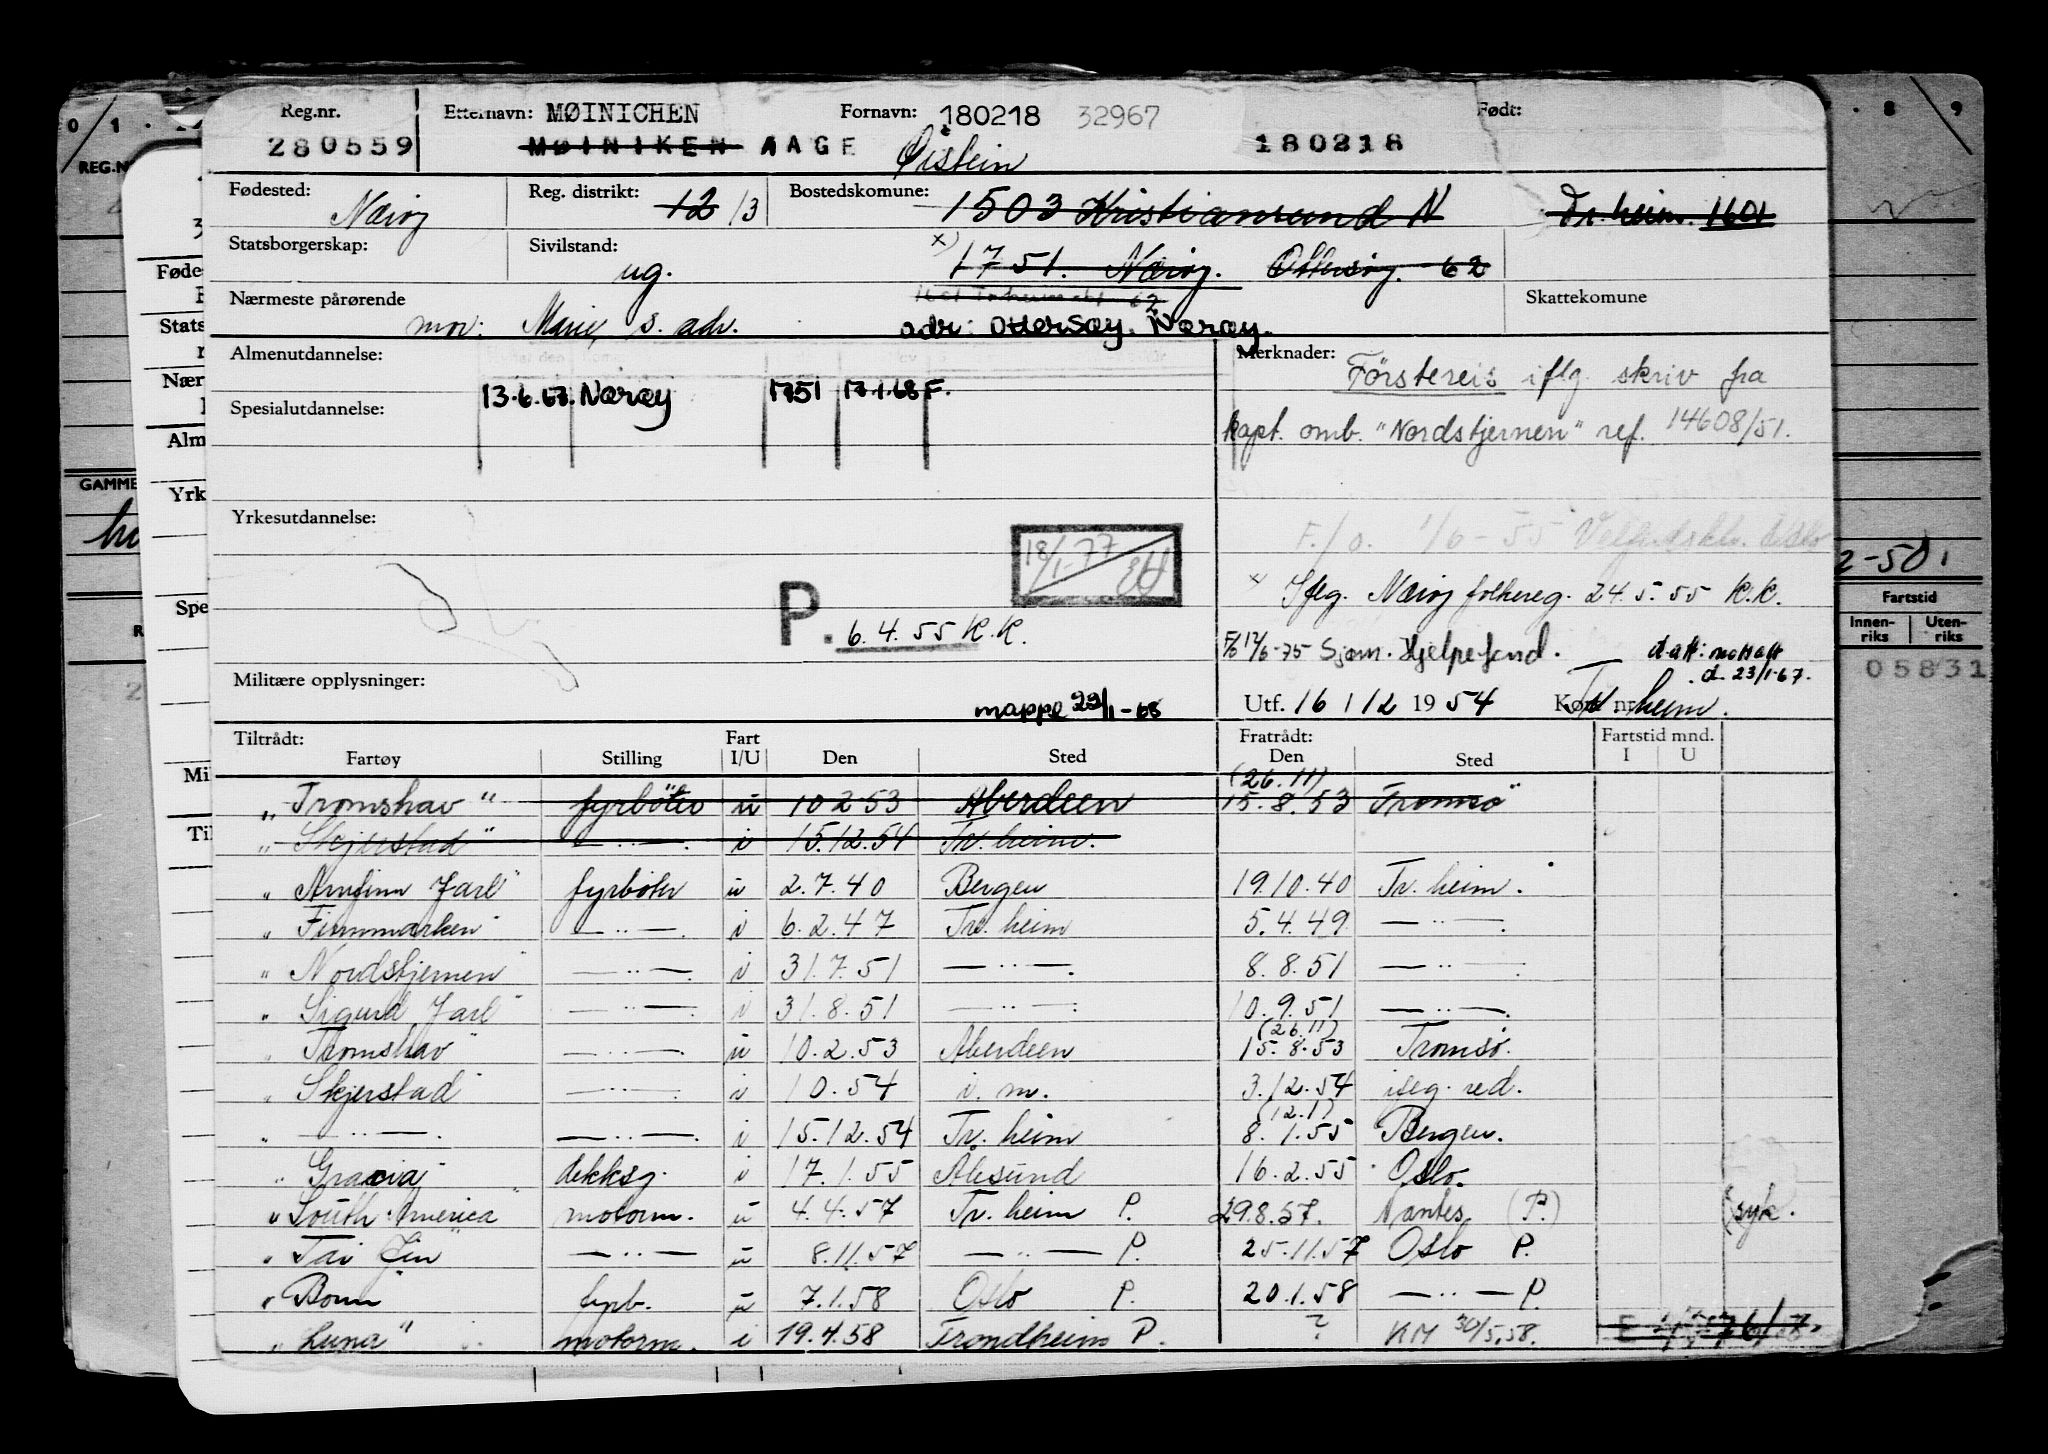 Reg.nr. Etternavn: MØINICHEN Fornavn: 180218 32967 Født:
280559 MØINIKEN AAGE Øistein 180218
Fødested: Nærøy Reg. distrikt: 12/3 Bostedskomune: 1503 Kristiansund N Tr. heim. 1601
Statsborgerskap: Sivilstand: ug. x) 1751. Nærøy. Ottersøy. 62
Nærmeste pårørende Skattekomune
mor: Marie, s. adr. adr: Ottersøy, Nærøy.
Almenutdannelse: Merknader: Förstereis iflg. skriv fra
13.6.67. Nærøy 1751 17.1.68 F.
Spesialutdannelse: kapt. omb. "Nordstjernen" ref. 14608/51.
Yrkesutdannelse: F./o. 1/6-55
18/1-77
x) Iflg. Nærøy folkereg. 24.5.55 K.K.
P. 6.4.55 K.K.
F/o 12/6-75 Sjøm. Hjelpefond. d.att: mottatt d. 23/1-67.
Militære opplysninger: mappe 29/1-68 Utf. 16/12 1954 Kort nr. Tr. heim.
Tiltrådt: Fratrådt: Fartstid mnd.
Fartøy Stilling Fart I/U Den Sted Den Sted I U
„ Tromshav" fyrböter u 10.2.53 Aberdeen (26.11) 15.8.53 Tromsø"
„ Skjerstad" — „ —. i 15.12.54 Tr. heim.
„ Arnfinn Jarl" fyrböter u 2.7.40 Bergen 19.10.40 Tr. heim.
„ Finnmarken" — „ —. i 6.2.47 Tr. heim 5.4.49 — „ —.
„ Nordstjernen" — „ —. i 31.7.51 — „ —. 8.8.51 — „ —.
„ Sigurd Jarl" — „ —. i 31.8.51 — „ —. 10.9.51 — „ —.
„ Tromshav" — „ —. u 10.2.53 Aberdeen (26.11) 15.8.53 Tromsö.
„ Skjerstad" — „ —. i 10.54 i. m. 3.12.54 iseg. red.
„ — „ —. — „ —. i 15.12.54 Tr. heim (12.1) 8.1.55 Bergen.
„ Gracia" dekksg. i 17.1.55 Ålesund 16.2.55 Oslo.
„ South America" motorm. u 4.4.57 Tr. heim P. 29.8.57. Nantes (P.) (syk.
„ Tai Jin" — „ —. u 8.11.57 — „ — P. 25.11.57 Oslo P.
„ Bonn" fyrb. u 7.1.58 Oslo P. 20.1.58 — „ — P.
„ Luna" motorm. i 19.4.58 Trondheim P. ? KM 30/5.58.
REG.N
GAMME
Føde
Stats
Nær
Alm
Yrk
Spe
Mil
Til
8 9
2-50.
Fartstid
Innen-riks Uten-riks
05831